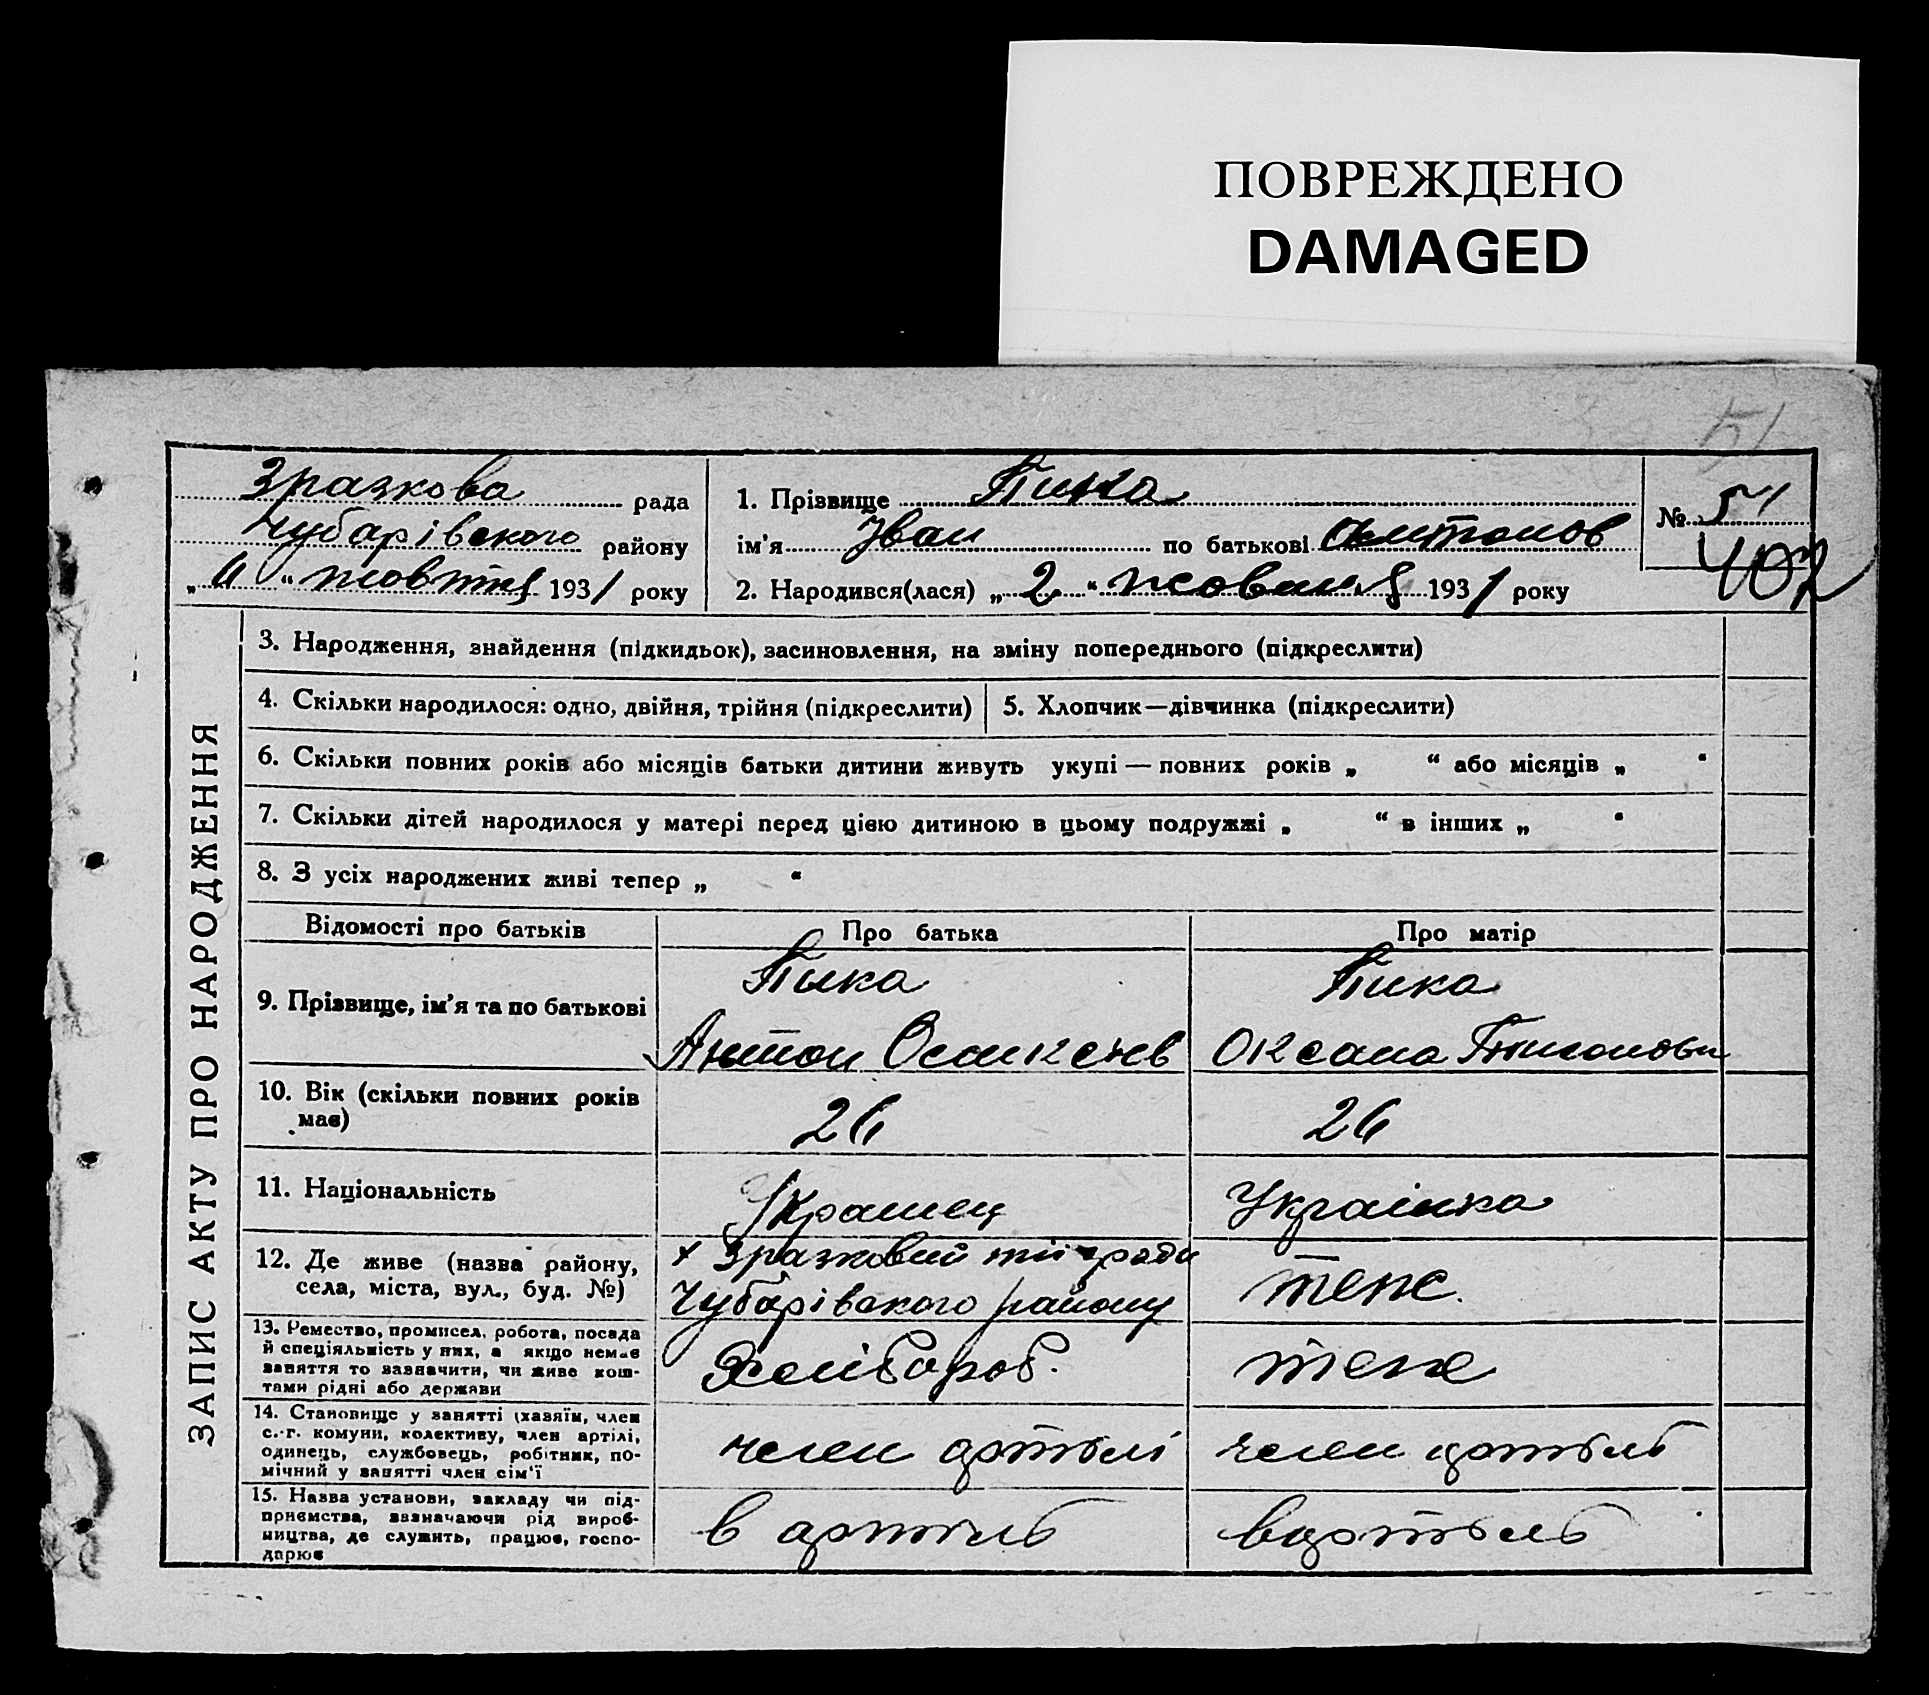 ПОВРЕЖДЕНО
DAMAGED
51
Зразкова рада
Чубарівського району
„ 11 “ жовтня 1931 року
1. Прізвище Пика
ім'я Іван по батькові Антонов
2. Народився(лася) „ 2 “ жовтня 1931 року
№ 51
407
ЗАПИС АКТУ ПРО НАРОДЖЕННЯ
3. Народження, знайдення (підкидьок), засиновлення, на зміну попереднього (підкреслити)
4. Скільки народилося: одно, двійня, трійня (підкреслити)
5. Хлопчик—дівчинка (підкреслити)
6. Скільки повних років або місяців батьки дитини живуть укупі — повних років „ “ або місяців „ “
7. Скільки дітей народилося у матері перед цією дитиною в цьому подружжі „ “ в інших „ “
8. З усіх народжених живі тепер „ “
Відомості про батьків
Про батька
Про матір
9. Прізвище, ім'я та по батькові
Пика
Антон
Пика
Оксана
10. Вік (скільки повних років
має)
26
26
11. Національність
Украінец
Украінка
12. Де живе (назва району,
села, міста, вул., буд. №)
х Зразковий ради
Чубарівського району
теже
13. Ремество, промисел, робота, посада
й спеціяльність у них, а якщо немає
заняття то зазначити, чи живе кош-
тами рідні або держави
Хлібороб.
теже
14. Становище у занятті (хазяїн, член
с.-г. комуни, колективу, член артілі,
одинець, службовець, робітник, по-
мічний у занятті член сім'ї
член артілі
член артіль
15. Назва установи, закладу чи під-
приємства, зазначаючи рід вироб-
ництва, де служить, працює, госпо-
дарює
в артіль
в артіль